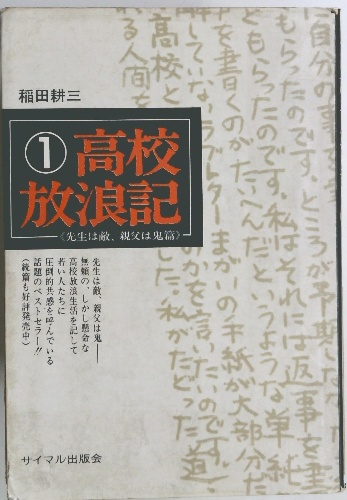 稲田耕三
①高校
放浪記
《先生は敵、親父は鬼篇》
先生は敵、親父は鬼――
無頼の、しかし懸命な
高校放浪生活を記して
若い人たちに
圧倒的共感を呼んでいる
話題のベストセラー!!
(続篇も好評発売中)
サイマル出版会
自分の事を
もらったのです。ところが予期しな
ともらったのです。私はそれには返事を書
を書くのがたいへんだと
解していない。ラブレターまがいの手紙が大部分だ
高校と
る人間を